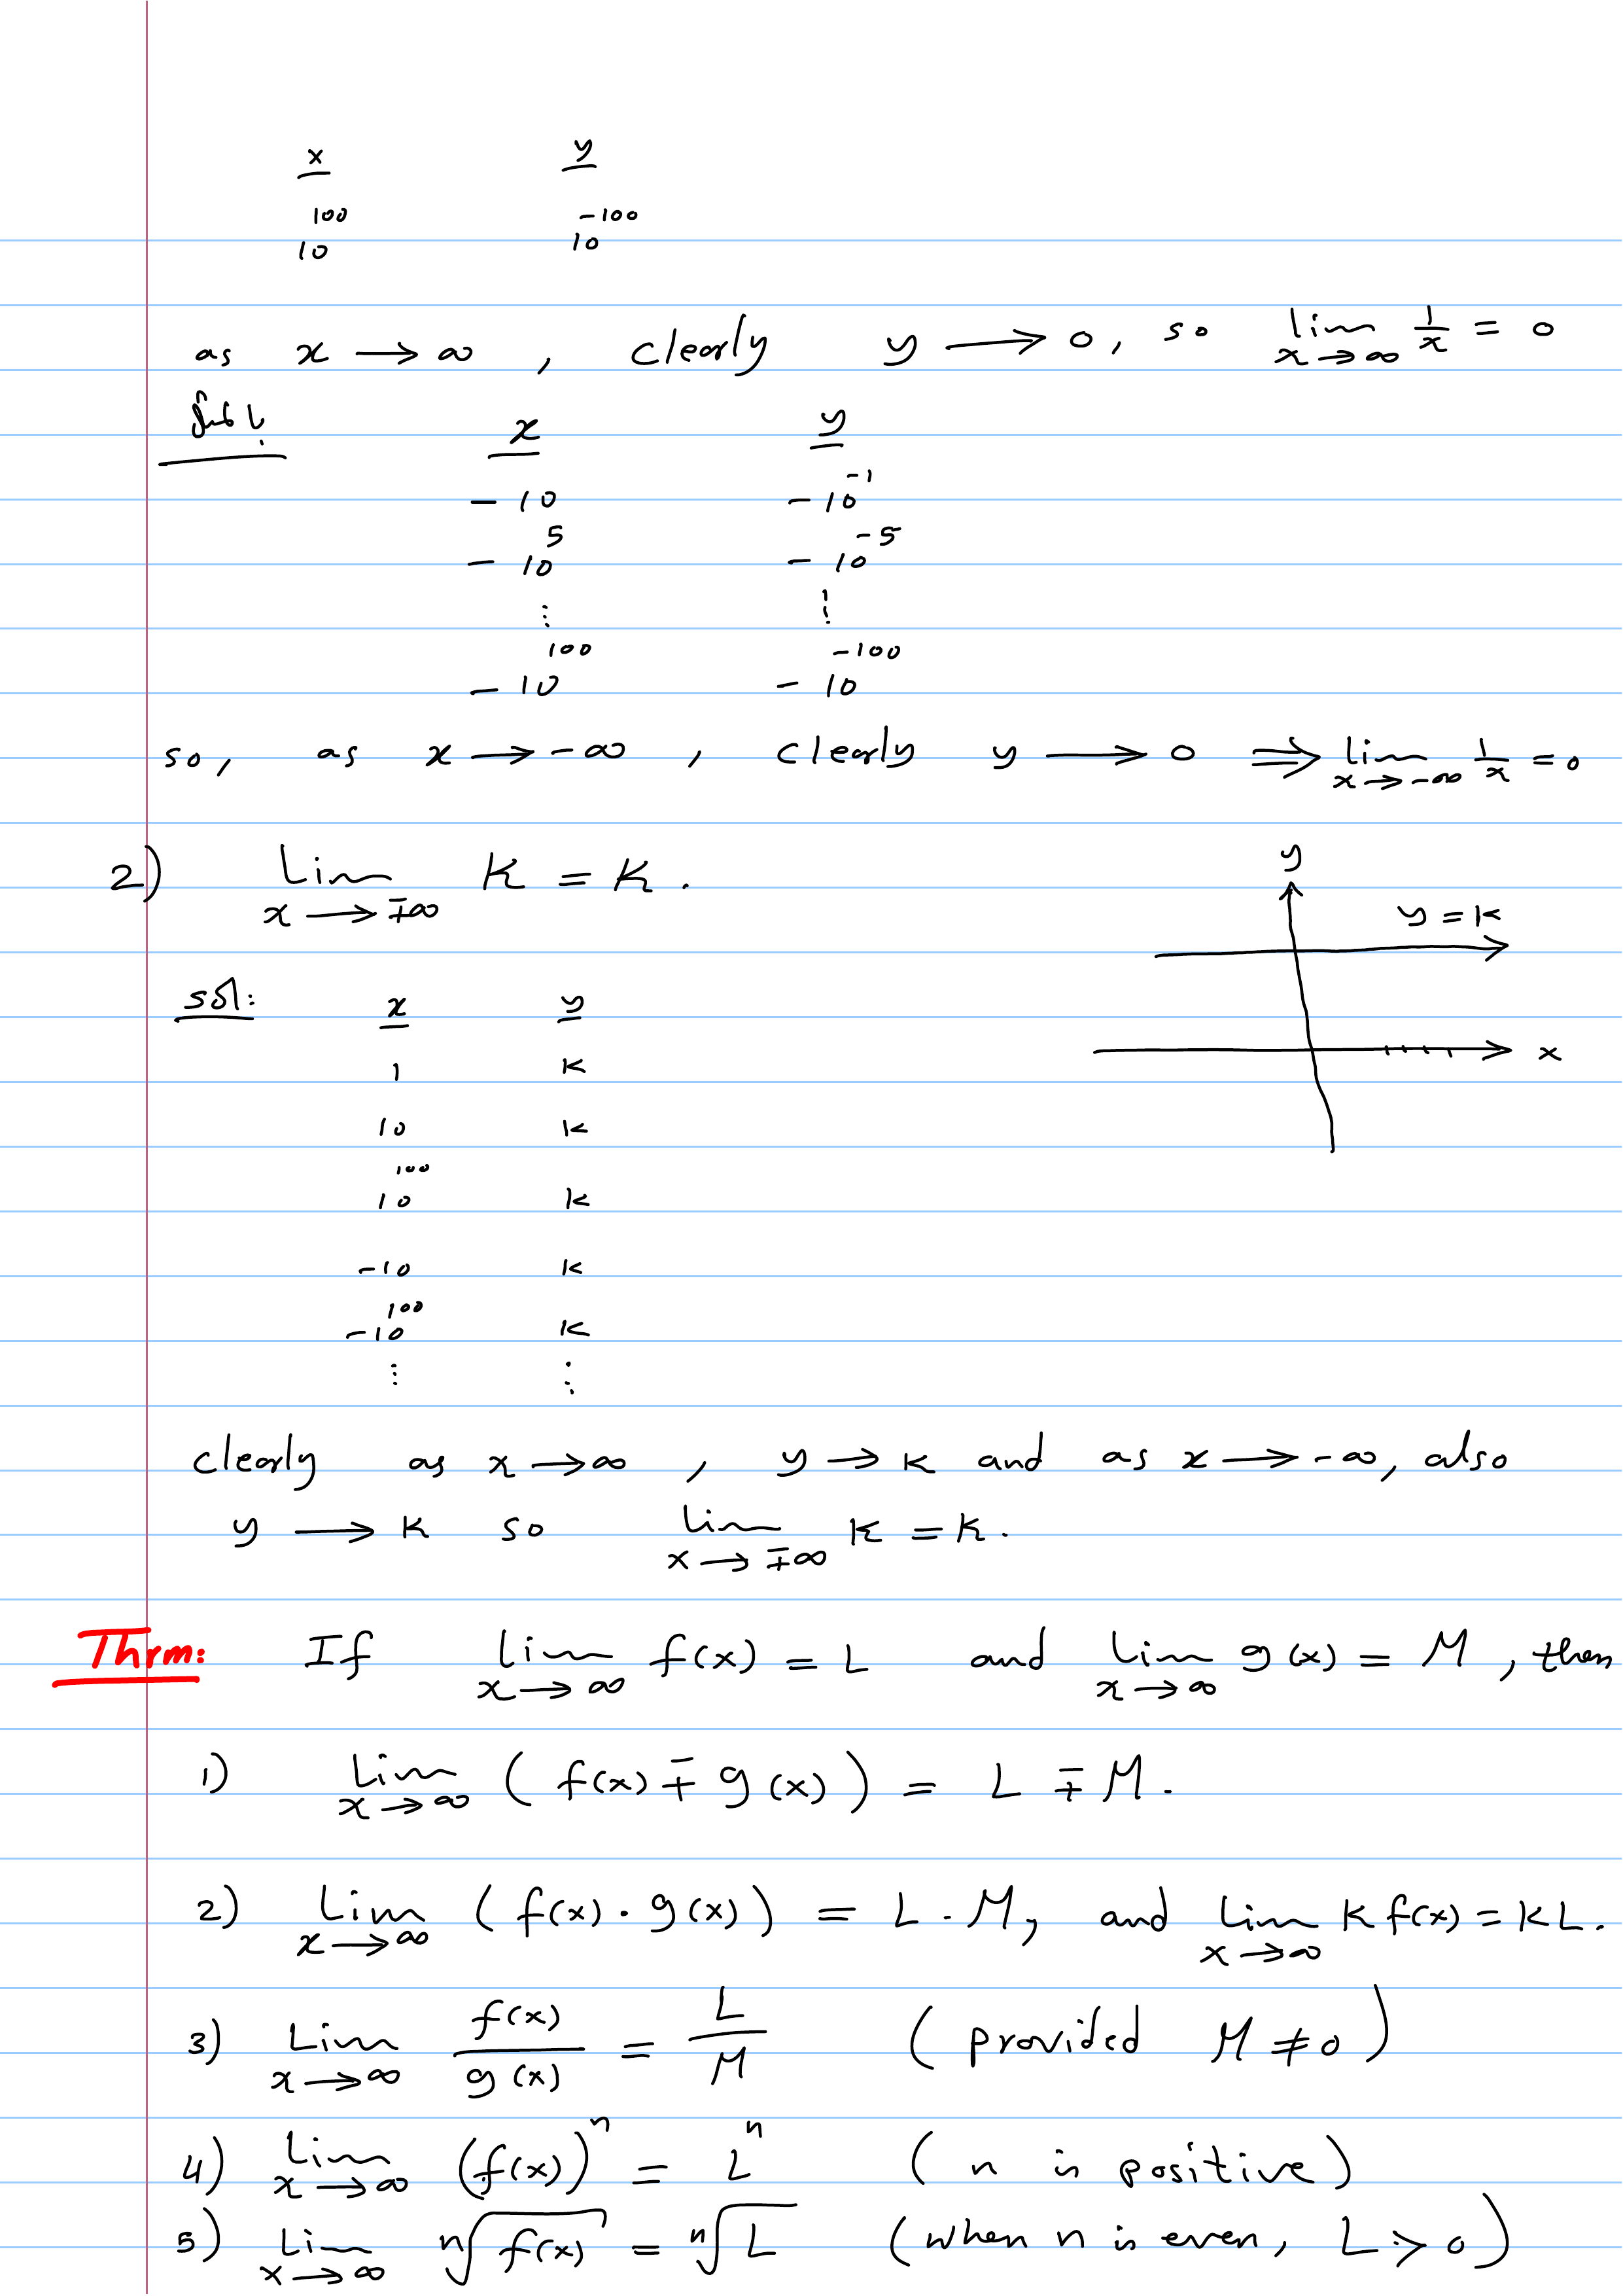 x y
10^100 10^-100
as x → ∞ , clearly y → 0, so lim x→∞ 1/x = 0
x y
-10 -10^-1
-10^5 -10^-5
⋮ ⋮
-10^100 -10^-100
so, as x → -∞ , clearly y → 0 ⇒ lim x→-∞ 1/x = 0
2) Lim x→∓∞ K = K.
y
y = k
x
sol: x y
1 k
10 k
10^100 k
-10 k
-10^100 k
⋮ ⋮
clearly as x → ∞ , y → k and as x → -∞, also
y → k so lim x→∓∞ k = k.
Thrm: If lim x→∞ f(x) = L and lim x→∞ g(x) = M , then
1) Lim x→∞ ( f(x) ∓ g(x) ) = L ∓ M.
2) Lim x→∞ ( f(x) · g(x) ) = L · M, and lim x→∞ K f(x) = KL.
3) Lim x→∞ f(x)/g(x) = L/M ( provided M ≠ 0 )
4) Lim x→∞ (f(x))^n = L^n ( n is positive )
5) Lim x→∞ ⁿ√f(x) = ⁿ√L (when n is even, L > 0)